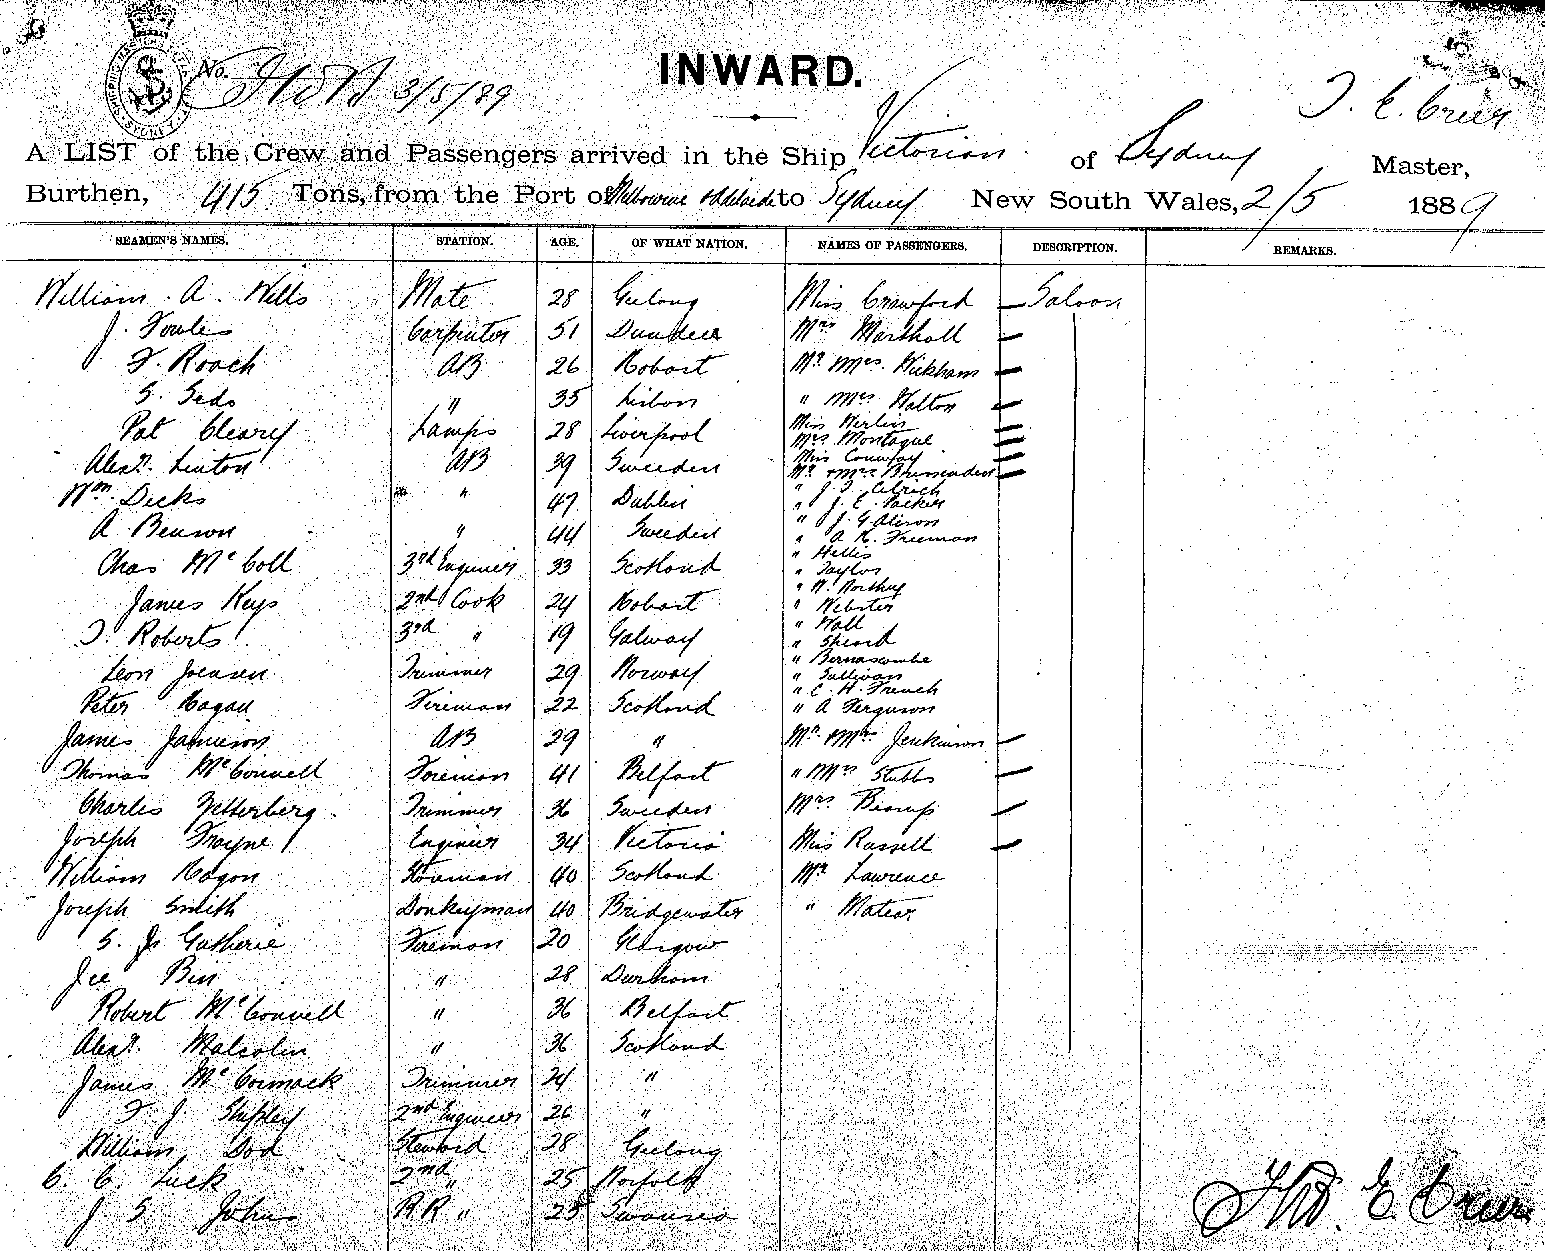 No. 3/5/89
INWARD.
T. E. Creer
A LIST of the Crew and Passengers arrived in the Ship Victorian of Sydney Master,
Burthen, 415 Tons, from the Port of Melbourne Adelaide to Sydney New South Wales, 2/5 1889
SEAMEN'S NAMES. STATION. AGE. OF WHAT NATION. NAMES OF PASSENGERS. DESCRIPTION. REMARKS.
William A. Wills Mate 28 Geelong Miss Crawford — Saloon
J. Fowles Carpenter 51 Dundee Mrs Marshall —
F. Roach AB 26 Hobart Mr Mrs Wickham —
S. " 35 Lisbon " Mrs Walton —
Pat Cleary Lamps 28 Liverpool Miss —
Mrs Montague —
Alexr. Linton AB 39 Sweeden Miss Conway —
Mr & Mrs —
Wm. Dicks " 47 Dublin " J. T.
" J. E. Packer
A Benson " 44 Sweeden " J. G. Alison
" A. R. Freeman
Chas McColl 3rd Engineer 33 Scotland " Hellis
" Taylor
James Keys 2nd Cook 24 Hobart " W. Northey
" Webster
T. Roberts 3rd " 19 Galway " Wall
" Sheard
Leon Jensen Trimmer 29 Norway " Bernascombe
" Sullivan
Peter Hagan Fireman 22 Scotland " C. H. French
" A Ferguson
James Jamieson AB 29 " Mr Mrs Jenkinson —
Thomas McConnell Foreman 41 Belfast " Mrs Stubbs —
Charles Zetterberg Trimmer 36 Sweeden Mrs —
Joseph Frayne Engineer 34 Victoria Miss Russell —
William Hagon 40 Scotland Mr Lawrence
Joseph Smith Donkeyman 40 Bridgewater " Matear
S. J. Gutherie Fireman 20 Glasgow
Jee Bin " 28 Durham
Robert McConnell " 36 Belfast
Alexr. Malcolm " 36 Scotland
James McCormack Trimmer 24 "
F J Shipley 2nd Engineer 26 "
William Dod Steward 28 Geelong
C. C. Luck 2nd " 25 Norfolk
J S Johns RR " 25 Swansea
Thos. E. Creer